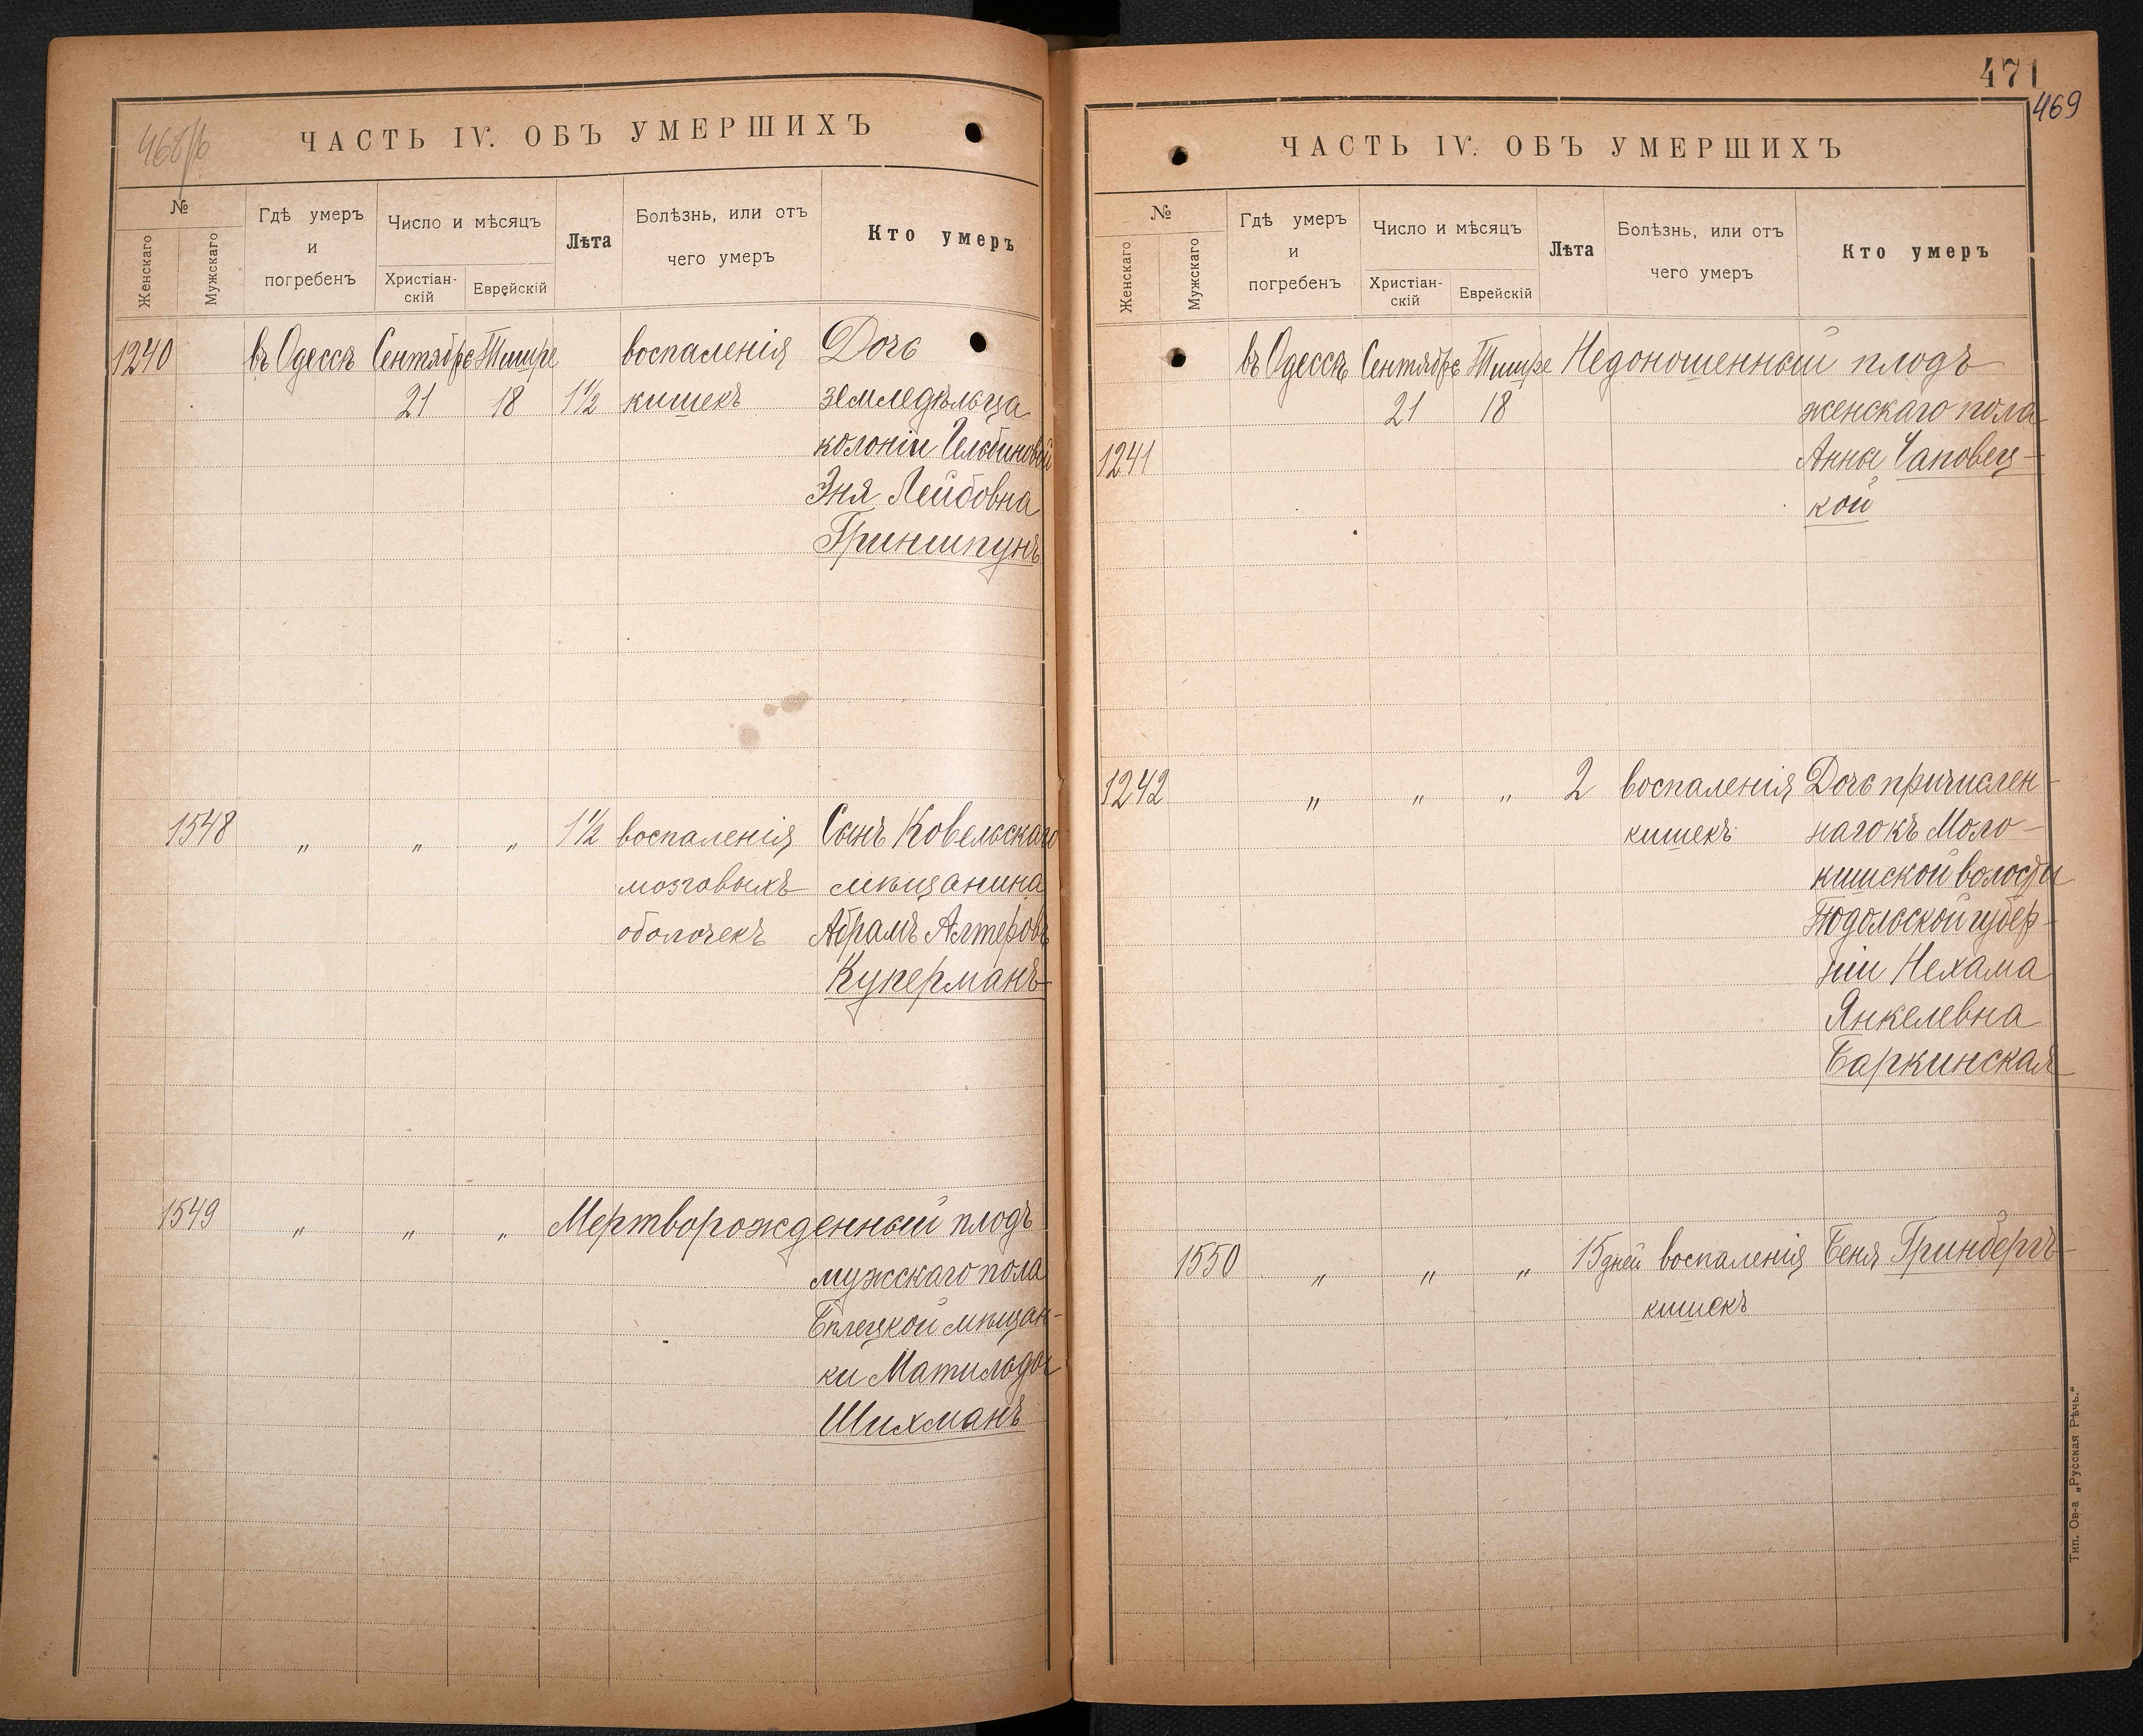 468/б
ЧАСТЬ IV. ОБЪ УМЕРШИХЪ
№
Женскаго
Мужскаго
Гдѣ умеръ
и
погребенъ
Число и мѣсяцъ
Христіан-
скій
Еврейскій
Лѣта
Болѣзнь, или отъ
чего умеръ
Кто умеръ
1240 въ Одессѣ Сентябрь Тишре воспаленія Дочь
21 18 1½ кишекъ земледѣльца
колоніи
Эня Лейбовна
Гриншпунъ
1548 „ „ „ 1½ воспаленія Сынъ Ковельскаго
мозговыхъ мѣщанина
оболочекъ Абрамъ Алтеровъ
Куперманъ
1549 „ „ „ Мертворожденный плодъ
мужскаго пола
Бѣлецкой мѣщан-
ки Матильды
Шихманъ
471
469
ЧАСТЬ IV. ОБЪ УМЕРШИХЪ
№
Женскаго
Мужскаго
Гдѣ умеръ
и
погребенъ
Число и мѣсяцъ
Христіан-
скій
Еврейскій
Лѣта
Болѣзнь, или отъ
чего умеръ
Кто умеръ
въ Одессѣ Сентябрь Тишре Недоношенный плодъ
21 18 женскаго пола
1241 Анны Саповец-
кой
1242 „ „ „ 2 воспаленія Дочь причислен-
кишекъ наго къ Моло-
кишской волости
Подольской губер-
ніи Нехама
Янкелевна
Баркинская
1550 „ „ „ 15 дней воспаленія Беня Гринбергъ
кишекъ
Тип. Ов-а „Русская Рѣчь.“